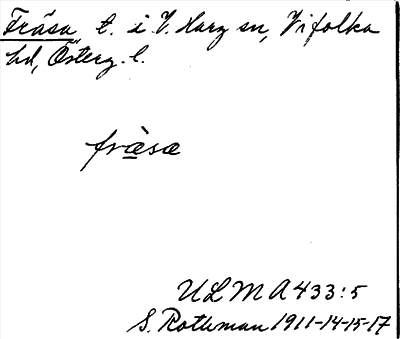 Fräsa, t. i V. Harg sn, Vifolka
hd, Österg. l.
fràsa
ULMA 433:5
S. Rothman 1911-14-15-17